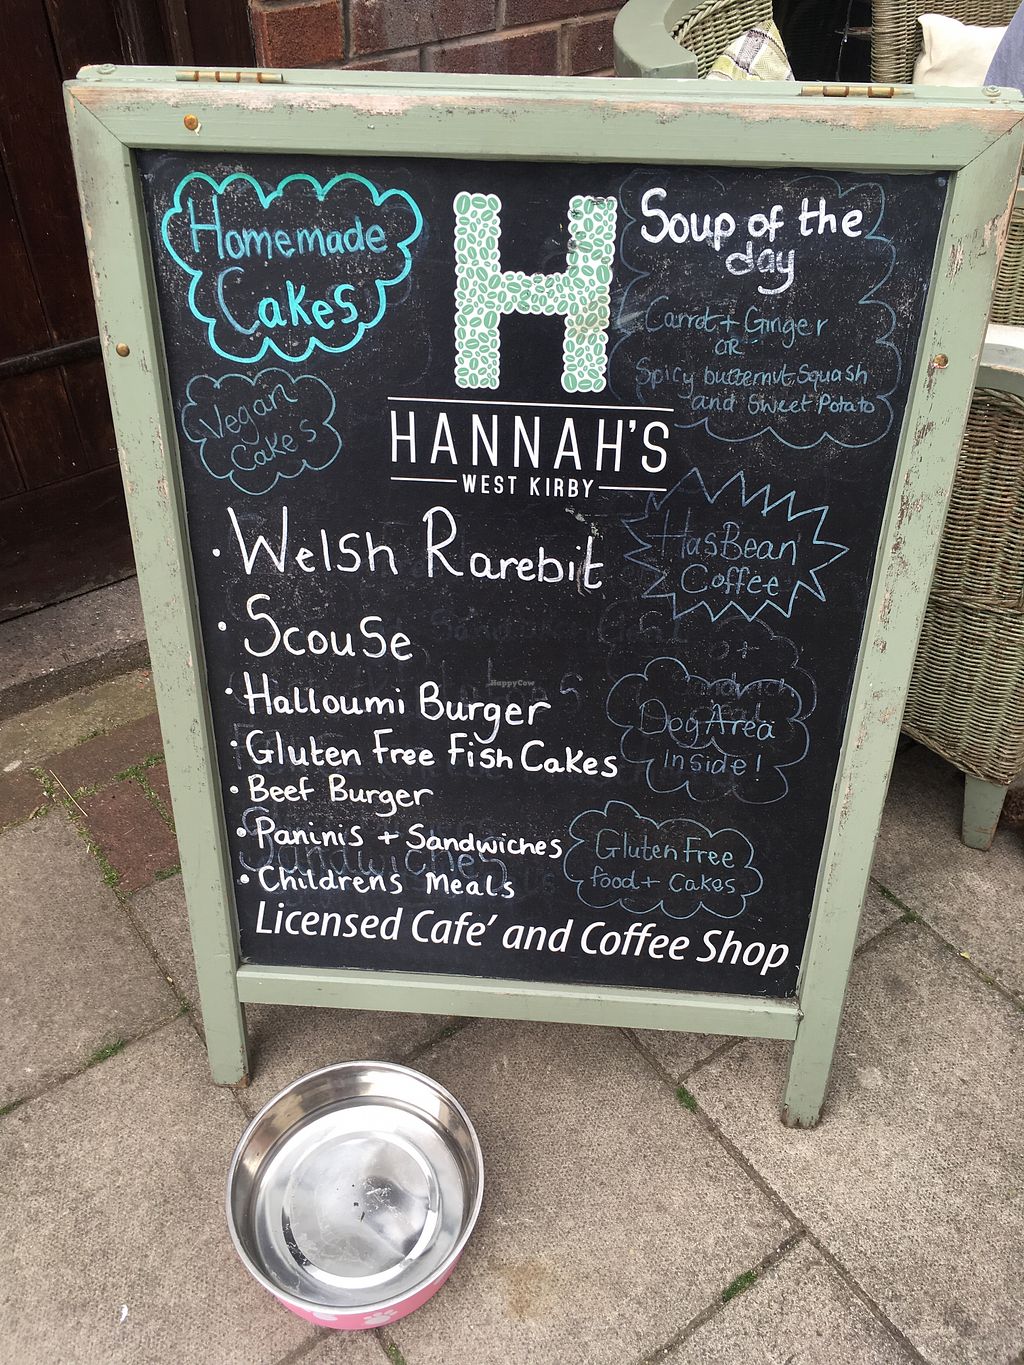 Homemade
Cakes
Vegan
Cakes
H
HANNAH'S
WEST KIRBY
Soup of the
day
Carrot + Ginger
OR
Spicy butternut Squash
and Sweet Potato
HasBean
Coffee
Dog Area
inside!
Gluten Free
food + Cakes
• Welsh Rarebit
• Scouse
• Halloumi Burger
• Gluten Free Fish Cakes
• Beef Burger
• Paninis + Sandwiches
• Childrens Meals
Sandwiches
Licensed Cafe' and Coffee Shop
HappyCow